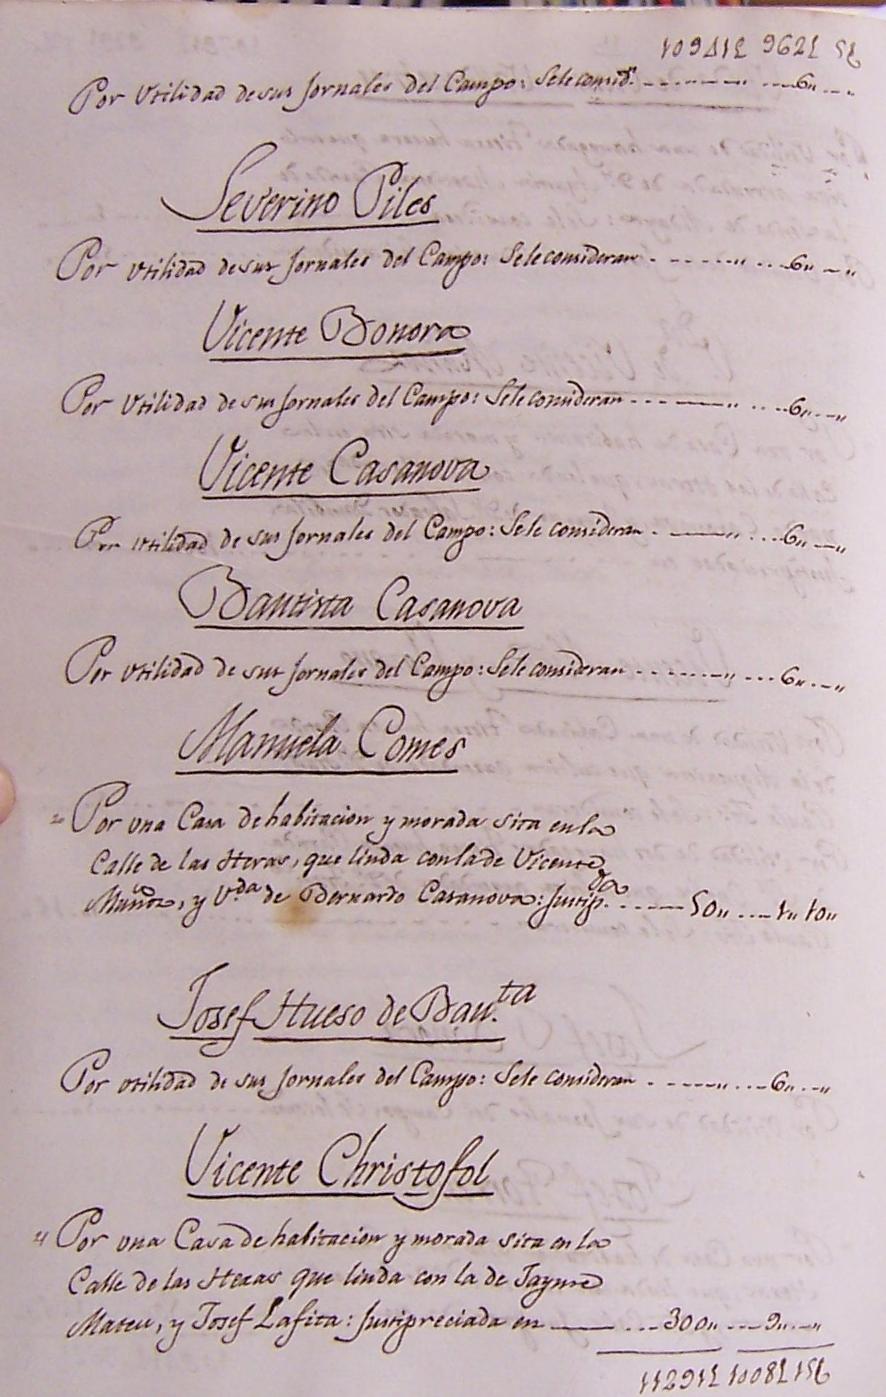 Por Vtilidad de sus Jornales del Campo: Sele consid.n 6„ „
Severino Piles
Por vtilidad de sus Jornales del Campo: Sele consideran „ 6„ „
Vicente Bonora
Por Vtilidad de sus Jornales del Campo: Sele consideran „ 6„ „
Vicente Casanova
Por vtilidad de sus Jornales del Campo: Sele consideran „ 6„ „
Bautista Casanova
Por Vtilidad de sus Jornales del Campo: Sele consideran „ 6„ „
Manuela Comes
Por vna Casa de habitacion y morada sita en la
Calle de las Heras, que linda con la de Vicente
Muñoz, y V.da de Bernardo Casanova: Justip.da 50„ 1„ 10„
Josef Hueso de Bau.ta
Por vtilidad de sus Jornales del Campo: Sele consideran „ 6„ „
Vicente Christofol
Por vna Casa de habitacion y morada sita en la
Calle de las Heras que linda con la de Jayme
Mateu, y Josef Lafita: Justipreciada en 300„ 9„ „